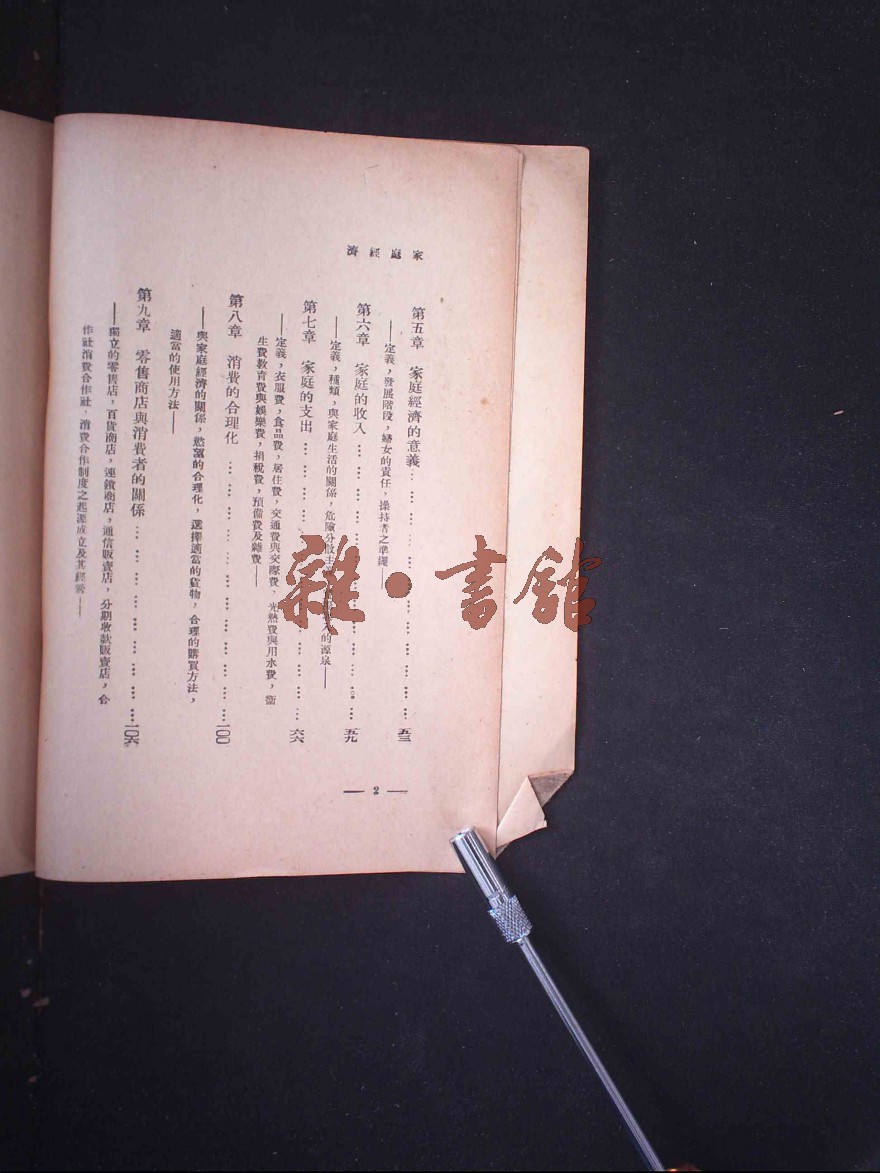 家庭經濟
第五章 家庭經濟的意義……………………五三
——定義，發展階段，婦女的責任，操持者之準繩——
第六章 家庭的收入……………………五九
——定義，種類，與家庭生活的關係，危險分散主 的源泉——
第七章 家庭的支出……………………六六
——定義，衣服費，食品費，居住費，交通費與交際費，光熱費與用水費，衞
生費教育費與娛樂費，捐稅費，預備費及雜費——
第八章 消費的合理化……………………一〇〇
——與家庭經濟的關係，慾望的合理化，選擇適當的貨物，合理的購買方法，
適當的使用方法——
第九章 零售商店與消費者的關係……………………一〇六
——獨立的零售店，百貨商店，連鎖商店，通信販賣店，分期收款販賣店，合
作社消費合作社，消費合作制度之起源成立及其經營——
— 2 —
雜·書館